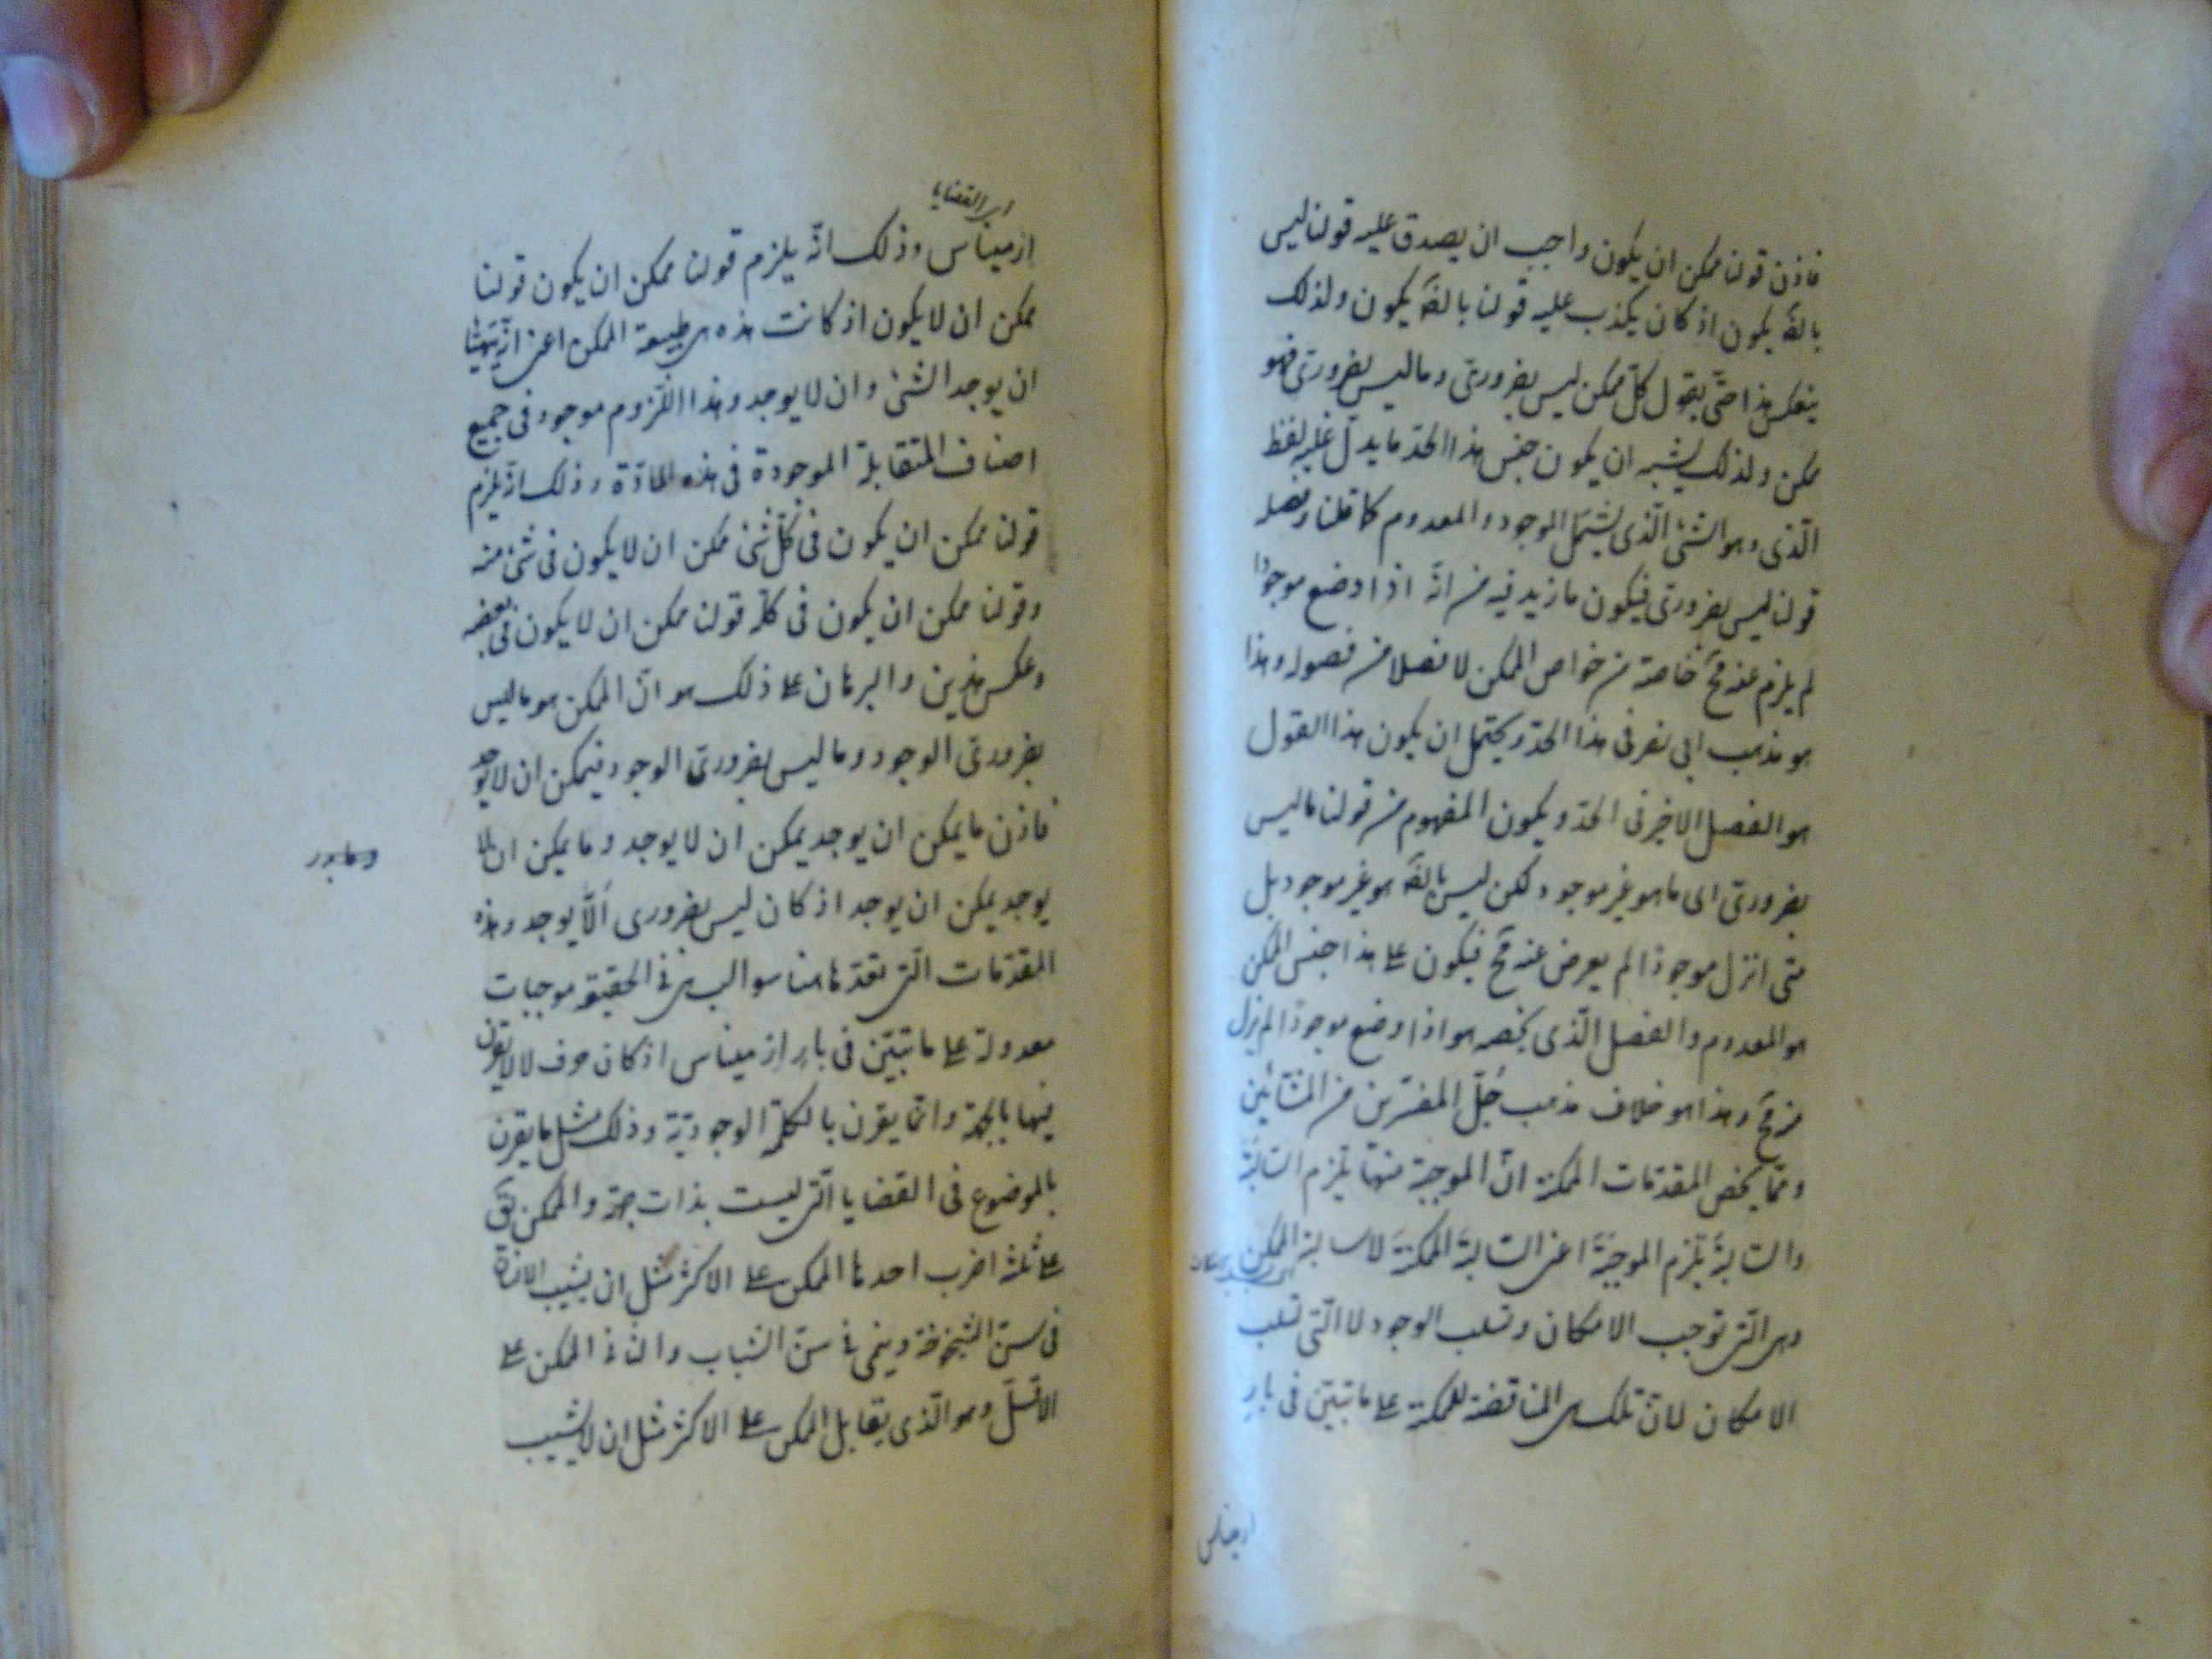 فاذن قولنا ممكن ان يكون واجب ان يصدق عليه قولنا ليس
بالفَ يكون اذ كان يكذب عليه قولنا بالفَ يكون ولذلك
ينعكس هذا حتّى يقول كلّ ممكن ليس بضرورىّ وما ليس بضرورىّ فهو
ممكن ولذلك يشبه ان يكون جنس هذا الحدّ ما يدلّ عليه لفظ
الّذى وهو الشئ الّذى يشتمل الموجود والمعدوم كما قلنا وفصله
قولنا ليس بضرورىّ فيكون ما زيد فيه من انّه اذا وضع موجودا
لم يلزم عنه مح خاصة من خواص الممكن لا فصلا من فصوله وهذا
هو مذهب ابى نصر فى هذا الحدّ ويحتمل ان يكون هذا القول
هو الفصل الاخير فى الحدّ ويكون المفهوم من قولنا ما ليس
بضرورىّ اى ما هو غير موجود لكن ليس بالفَ هو غير موجود بل
متى انزل موجودا لم يعرض عنه مح فيكون على هذا جنس الممكن
هو المعدوم والفصل الّذى يخصه هو اذا وضع موجودًا لم يزل
منه مح وهذا هو خلاف مذهب جُلّ المفسّرين من المشّائين
وممّا يخص المقدّمات الممكنة انّ الموجبة منها تلزم السّالبة
والسّالبةُ تلزم الموجبةَ اعنى السّالبةَ الممكنةَ لا سالبة الممكن
وهى التى توجب الامكان وتسلب الوجود لا الّتى تسلب
الامكان لانّ تلك هى المناقضة للممكنة على ما تبيّن فى بارِ
ارميناس
اى القضايا
ارميناس وذلك انّه يلزم قولنا ممكن ان يكون قولنا
ممكن ان لا يكون اذ كانت هذه هى طبيعة الممكن اعنى انّه يتهيّا
ان يوجد الشئ وان لا يوجد وهذا اللّزوم موجود فى جميع
اصناف المتقابلة الموجودة فى هذه المادّة وذلك انّه يلزم
قولنا ممكن ان يكون فى كلّ شئ ممكن ان لا يكون فى شئ منه
وقولنا ممكن ان يكون فى كلّه قولنا ممكن ان لا يكون فى بعضه
وعكس هذين والبرهان على ذلك هو انّ الممكن هو ما ليس
بضرورىّ الوجود وما ليس بضرورىّ الوجود فيمكن ان لا يوجد
فاذن ما يمكن ان يوجد يمكن ان لا يوجد وما يمكن ان لا
يوجد يمكن ان يوجد اذ كان ليس بضرورى ألّا يوجد وهذه
المقدّمات الّتى نعدّها هنا سوالب هى فى الحقيقة موجبات
معدولة على ما تبيّن فى بارِ ارميناس اذ كان حرف لا لا يقرن
فيها بالجهة وانّما يقرن بالكلمة الوجوديّة وذلك مثل ما يقرن
بالموضوع فى القضايا الّتى ليست بذات جهة والممكن يَقَ
على ثلثة اضرب احدها الممكن على الاكثر مثل ان يشيب الانسان
فى سنّ الشّيخوخة وينمى فى سنّ الشّباب والثّانى الممكن على
الاقلّ وهو الّذى يقابل الممكن على الاكثر مثل ان لا يشيب